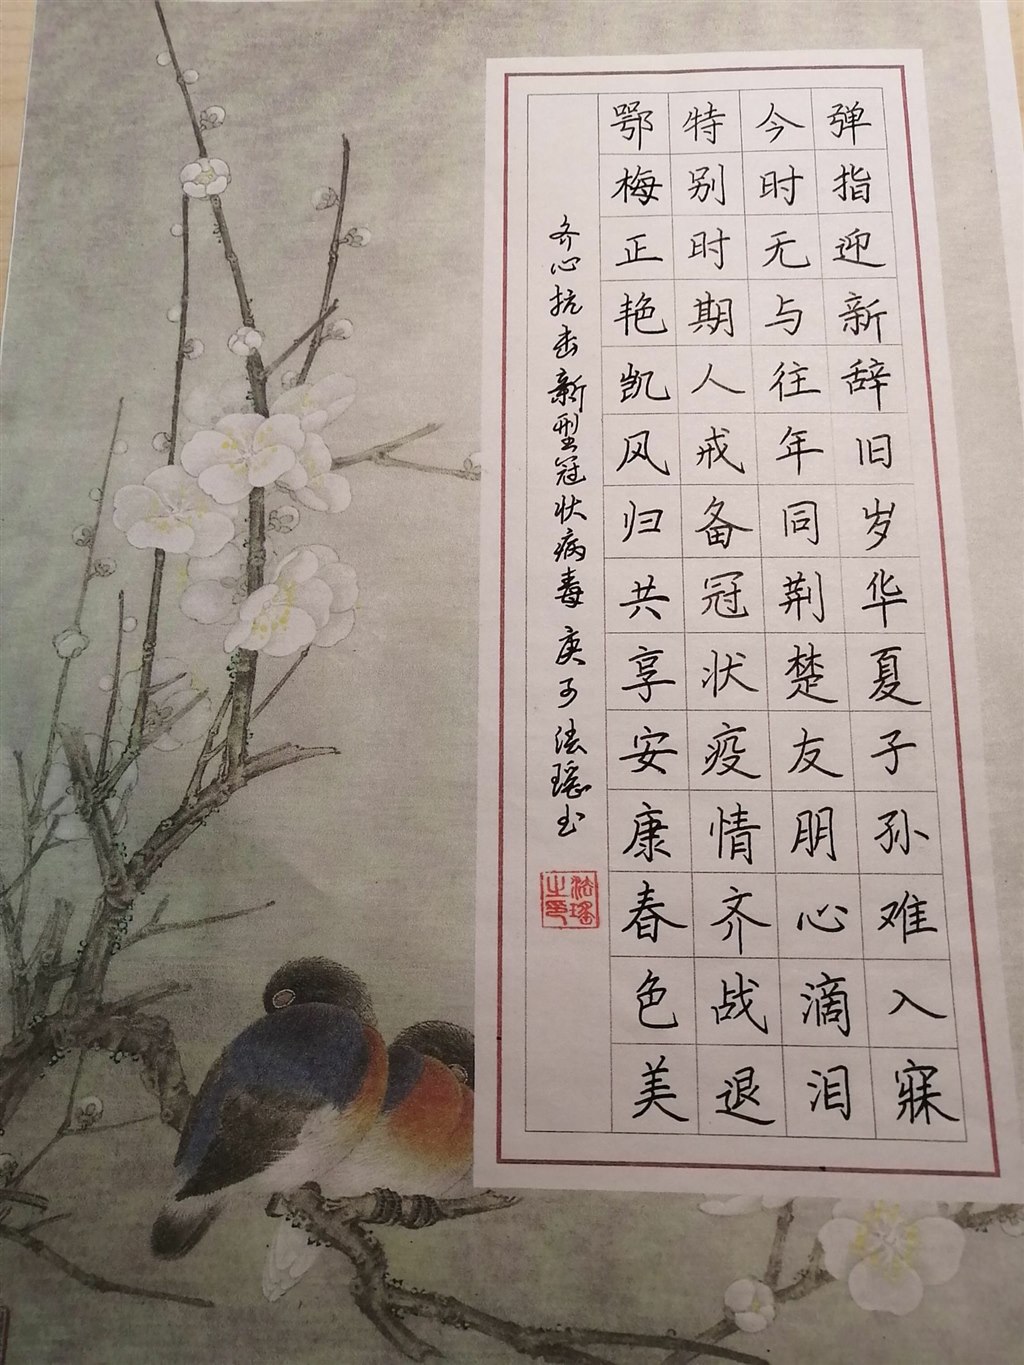 弹指迎新辞旧岁华夏子孙难入寐
今时无与往年同荆楚友朋心滴泪
特别时期人戒备冠状疫情齐战退
鄂梅正艳凯风归共享安康春色美
齐心抗击新型冠状病毒 庚子法瑶书
法瑶之印